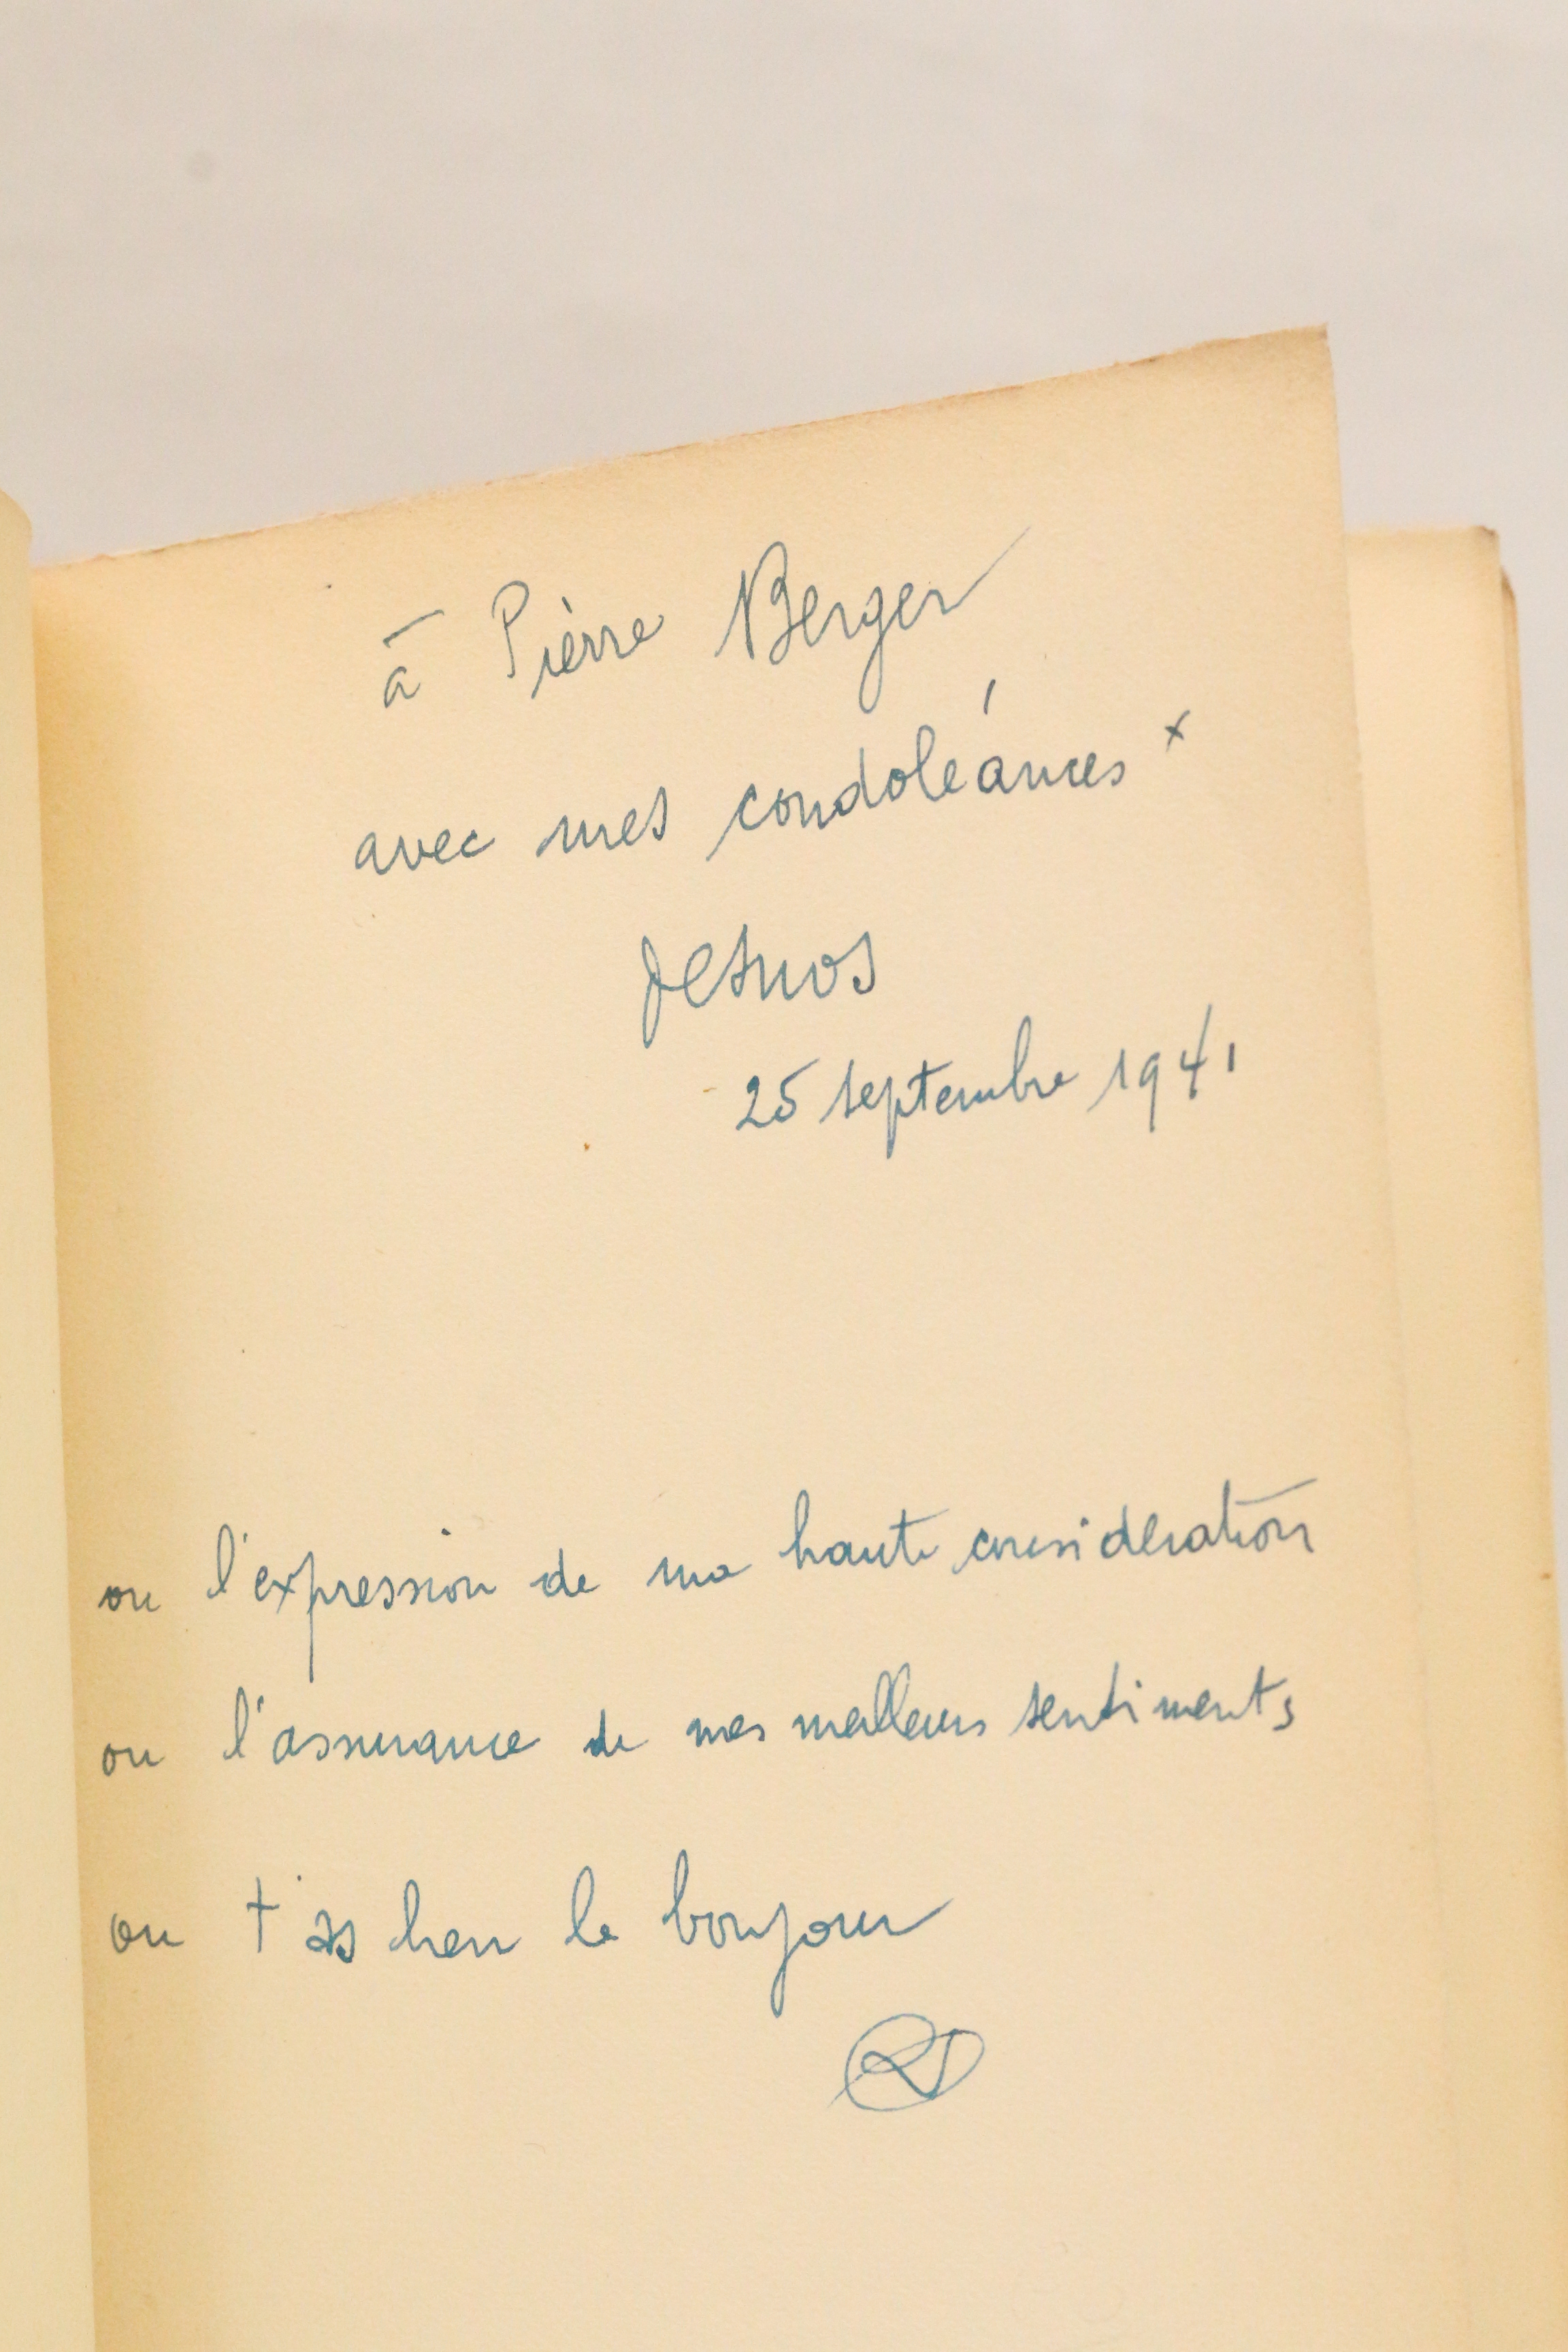 à Pierre Berger
avec mes condoléances x
Desnos
25 septembre 1941
ou l'expression de ma haute considération
ou l'assurance de mes meilleurs sentiments
ou t'as bien le bonjour
RD